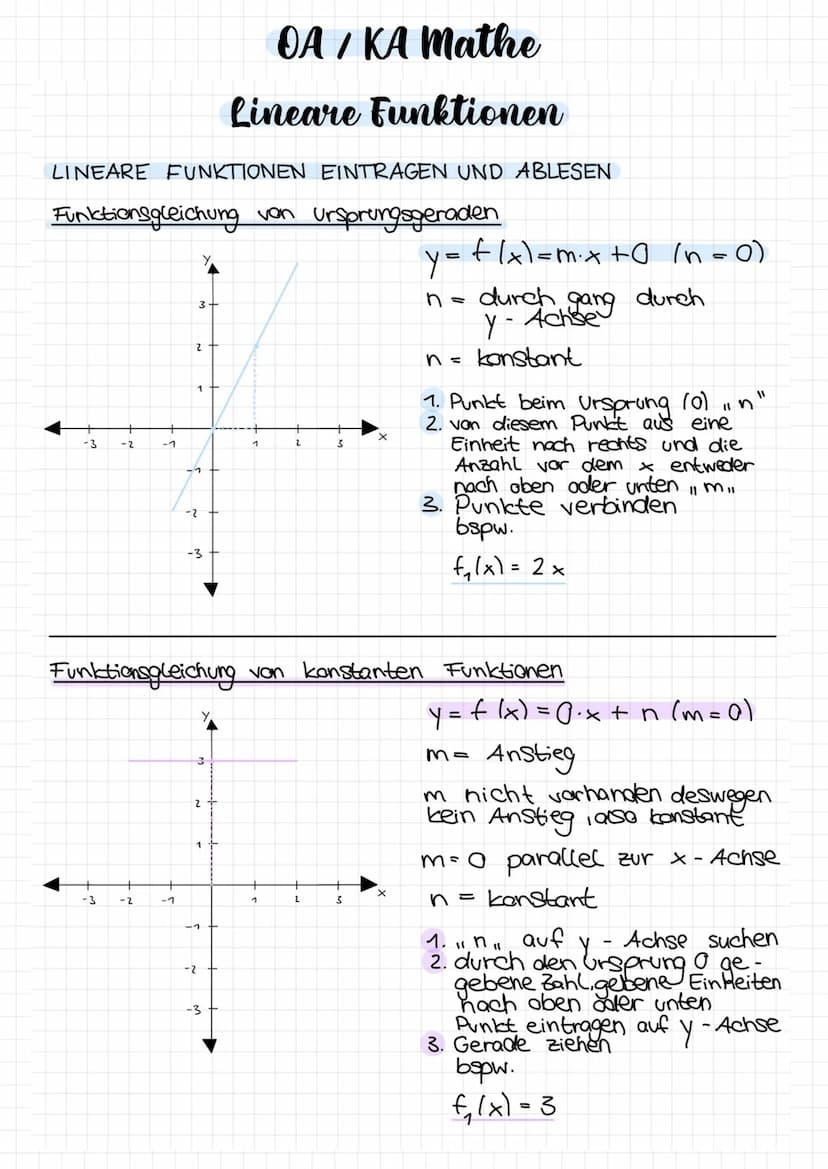 OA / KA Mathe
Lineare Funktionen
LINEARE FUNKTIONEN EINTRAGEN UND ABLESEN
Funktionsgleichung von Ursprungsgeraden
y = f(x)=m·x+0 (n = 0)
n = durch gang durch
y - Achse
n = konstant
1. Punkt beim Ursprung (0) „n"
2. von diesem Punkt aus eine
Einheit nach rechts und die
Anzahl vor dem x entweder
nach oben oder unten „m„
3. Punkte verbinden
bspw.
f₁(x) = 2x
y
3
2
1
-3 -2 -1 1 2 3 x
-1
-2
-3
Funktionsgleichung von konstanten Funktionen
y = f(x) = 0·x + n (m = 0)
m = Anstieg
m nicht vorhanden deswegen
kein Anstieg, also konstant
m = 0 parallel zur x - Achse
n = konstant
1. „n„ auf y - Achse suchen
2. durch den Ursprung 0 ge-
gebene Zahl, gebene Einheiten
nach oben oder unten
Punkt eintragen auf y - Achse
3. Gerade ziehen
bspw.
f₁(x) = 3
y
3
2
1
-3 -2 -1 1 2 3 x
-1
-2
-3